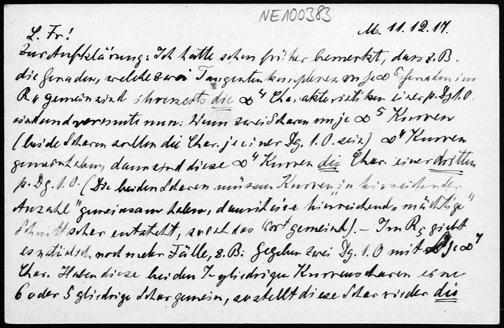 NE100383
M. 11.12.17.
L. Fr!
Zur Aufklärung: Ich hatte schon früher bemerkt, dass z. B.
die Geraden, welche zwei Tangentenkomplexen von je ∞⁵ Geraden im
R₄ gemein sind ihrerseits die ∞⁴ Charakteristiken einer p. Dg. 1. O.
sind und vermutete nun: Wenn zwei Scharen von je ∞⁵ Kurven
(beide Scharen sollen die Char. je einer Dg. 1. O. sein) ∞⁴ Kurven
gemein haben, dann sind diese ∞⁴ Kurven die Char. einer dritten
p. Dg. 1. O. (Die beiden Scharen müssen Kurven "in hinreichender
Anzahl" gemeinsam haben, damit eine "hinreichend mächtige"
Schnittschar entsteht, so ist das Wort gemeint). - Im R₅ giebt
es natürlich noch mehr Fälle, z. B. Gegeben zwei Dg. 1. O mit je ∞⁷
Char. Haben diese beiden 7-gliedrigen Kurvenscharen eine
6 oder 5 gliedrige Schar gemein, so stellt diese Schar wieder die